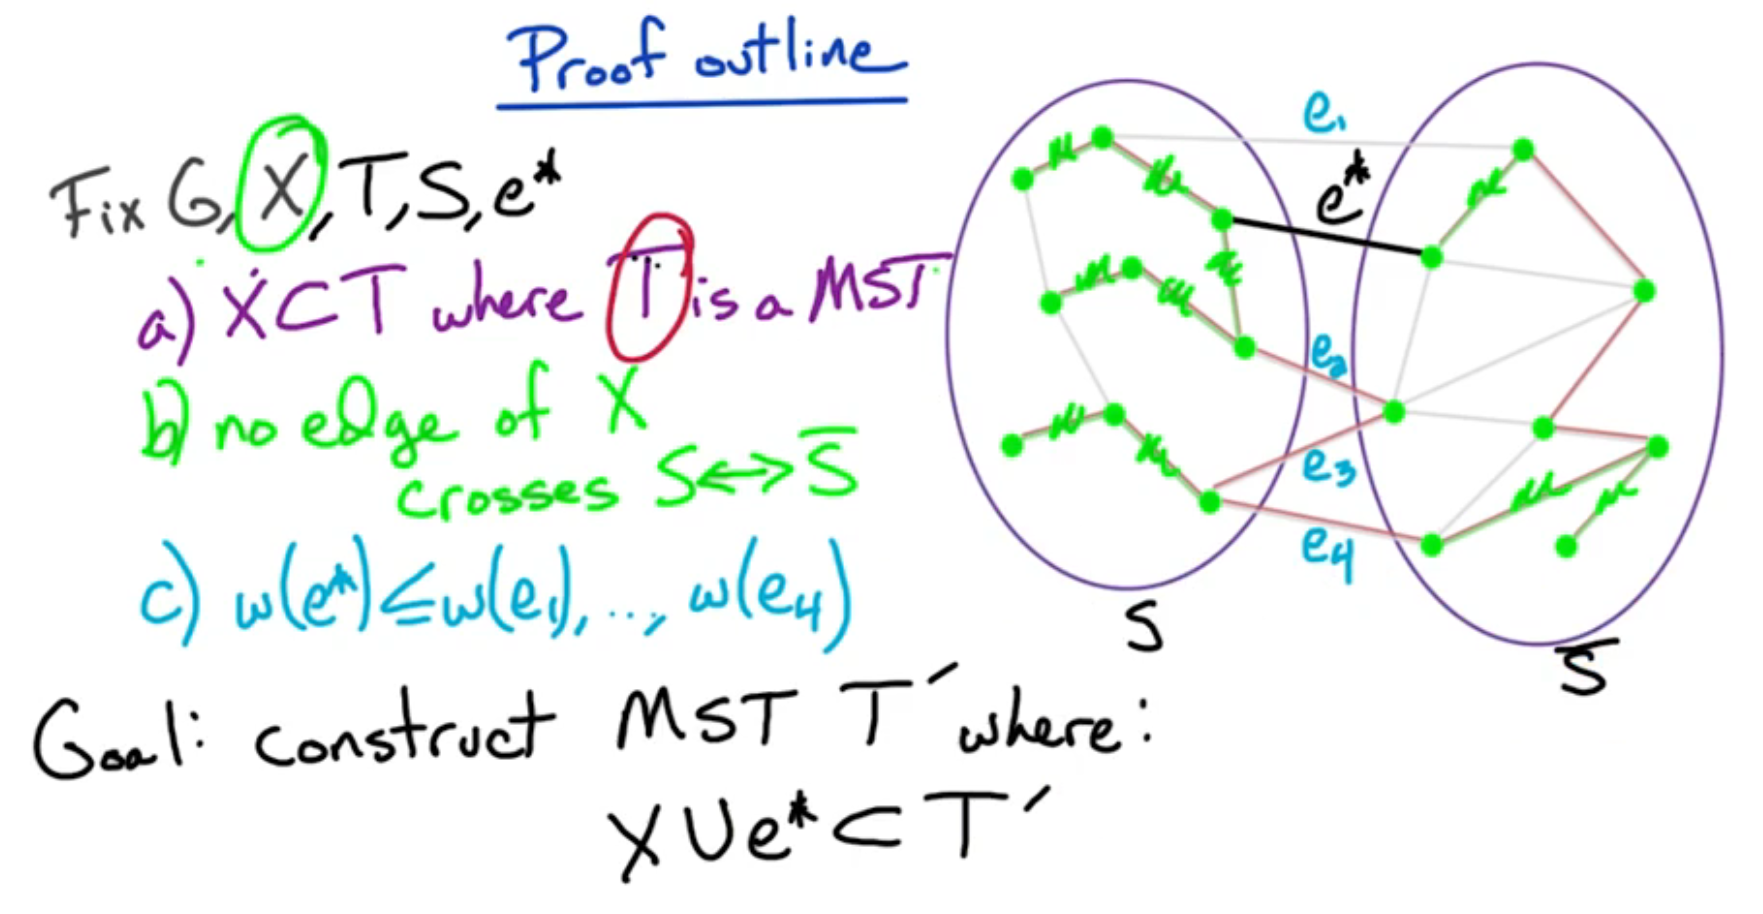 Proof outline
Fix G, X, T, S, e*
a) X⊂T where T is a MST
b) no edge of X
crosses S↔S̅
c) w(e*)≤w(e₁), ..., w(e₄)
Goal: construct MST T′ where:
X∪e*⊂T′
e₁
e*
e₂
e₃
e₄
S
S̅